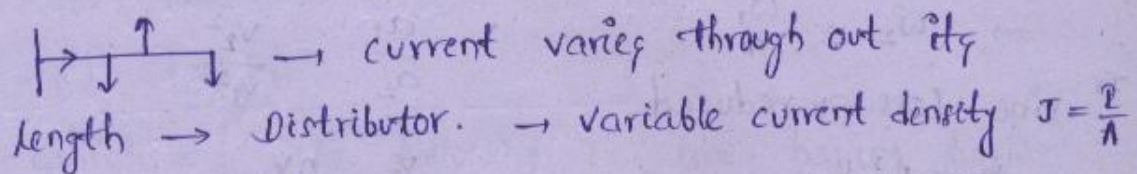 → current varies through out its
length → Distributor. → variable current density J = I/A